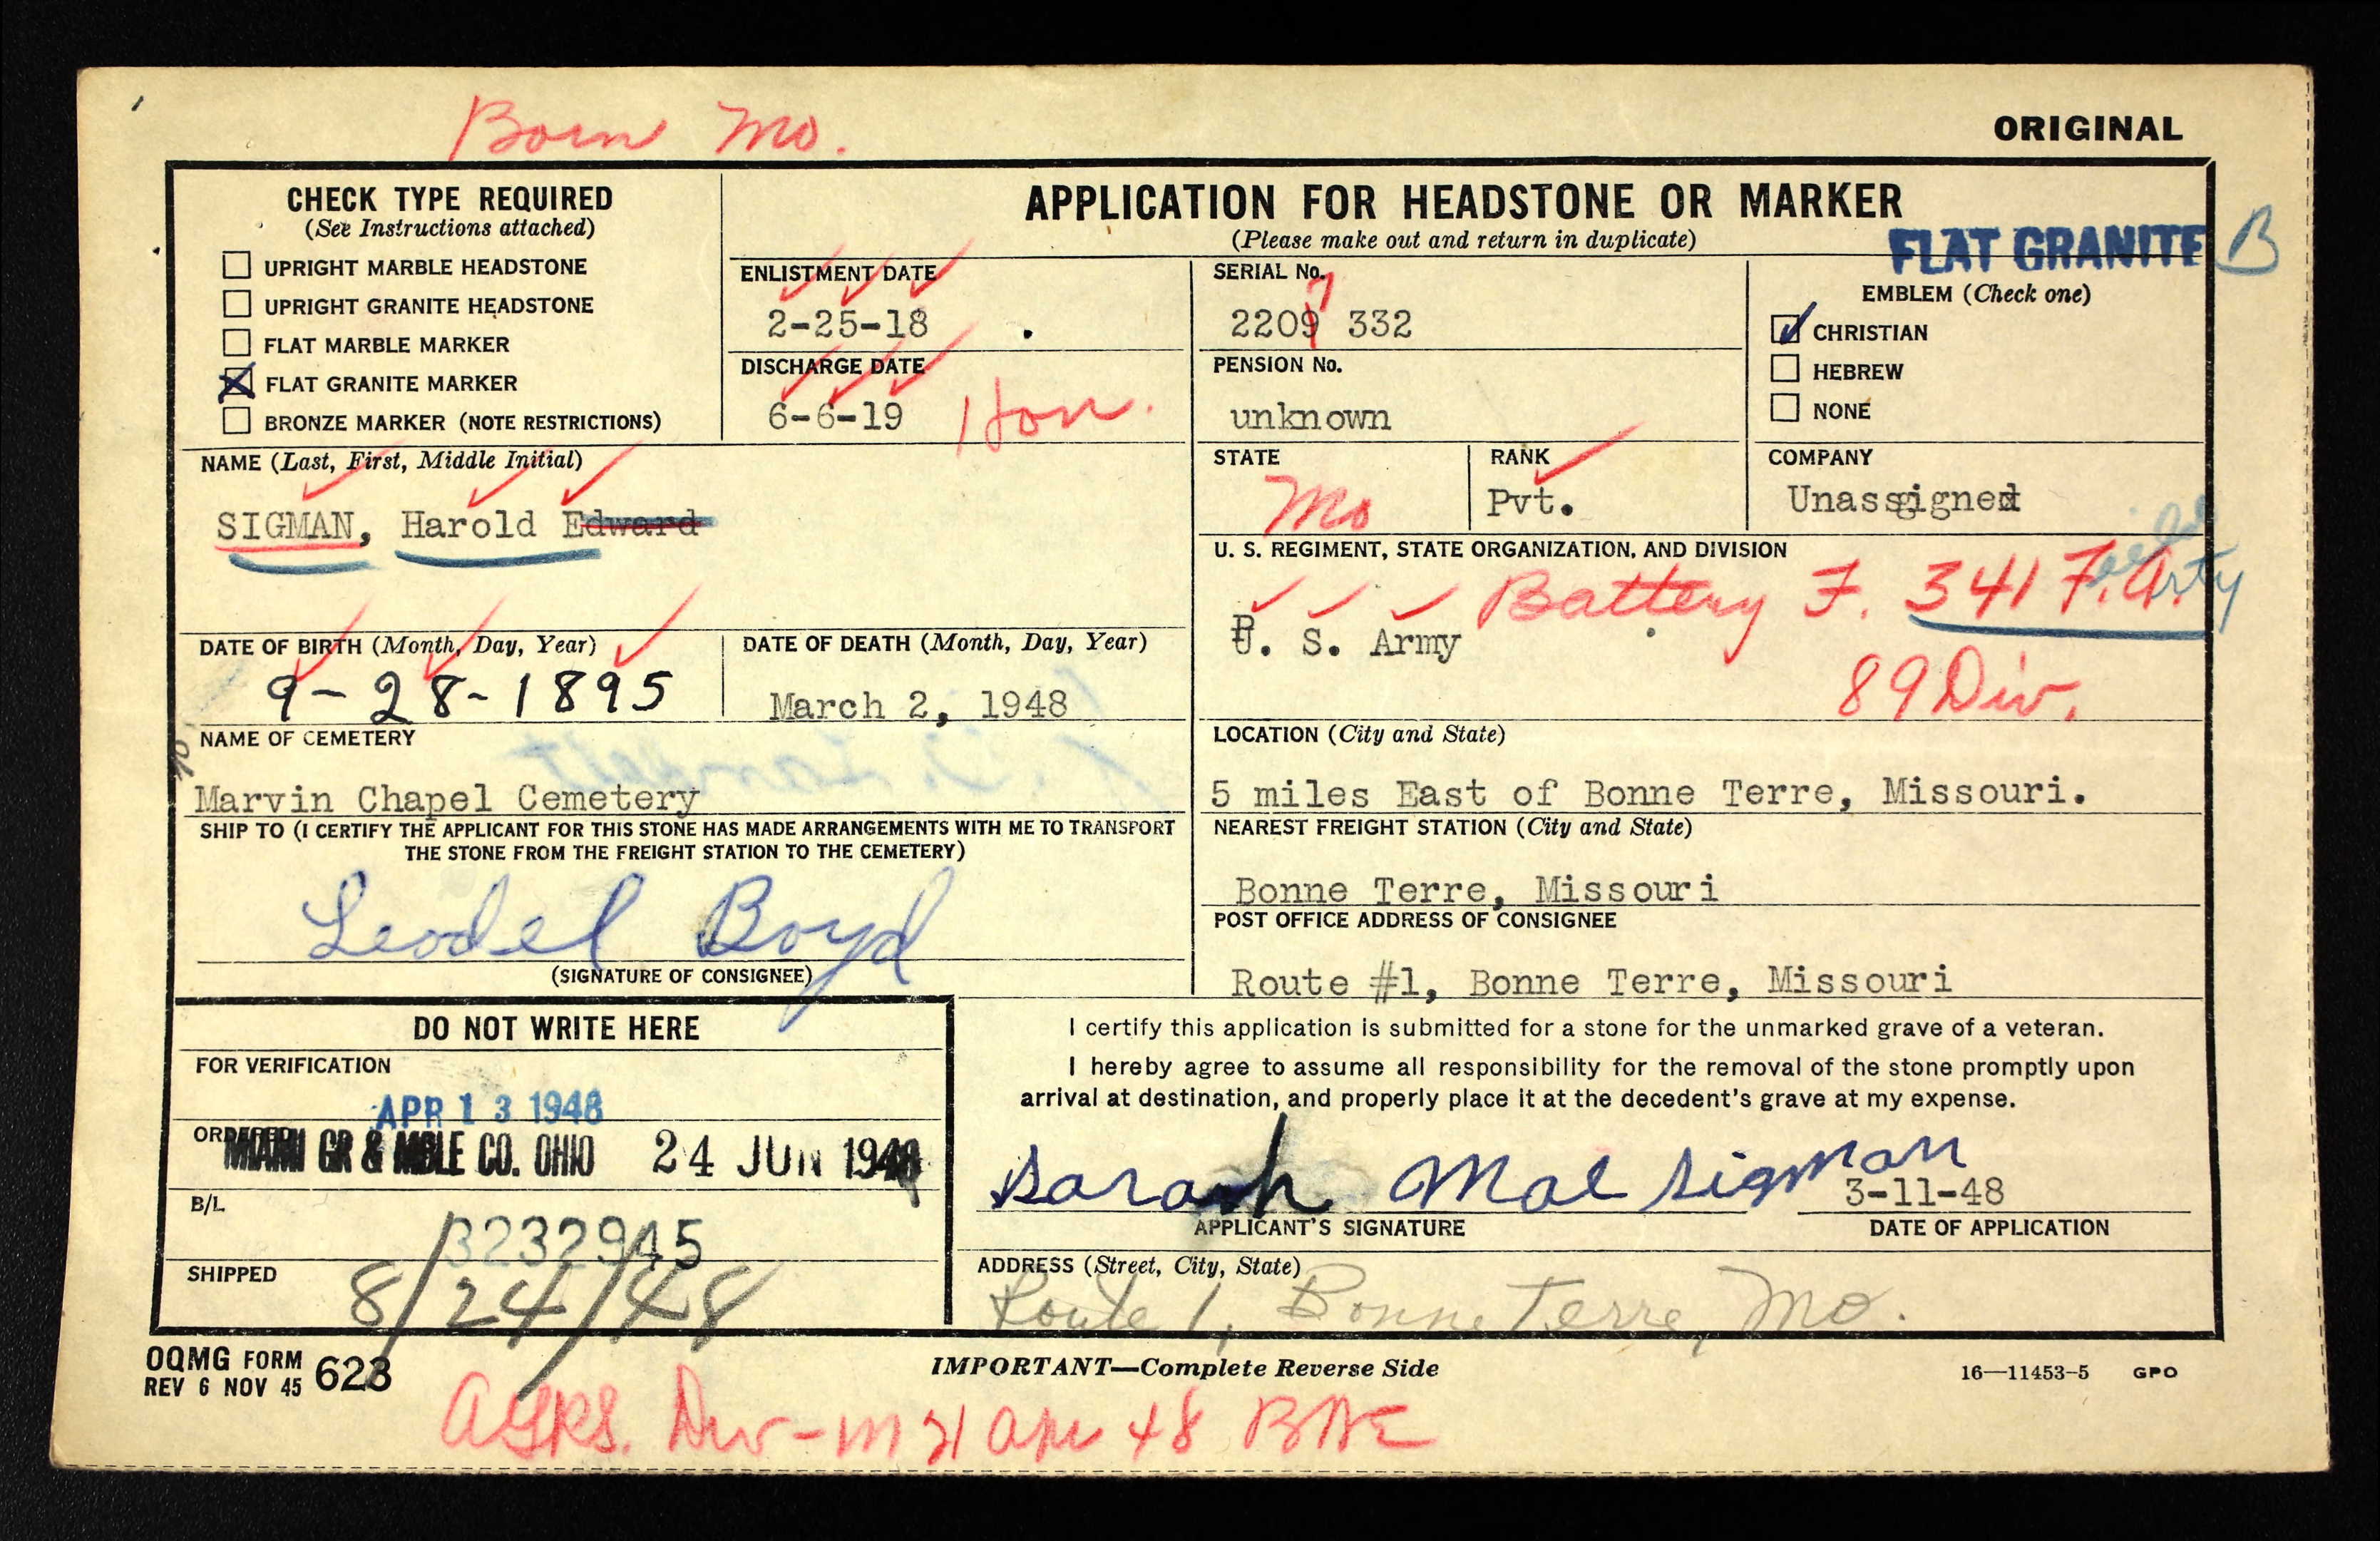 Born Mo.
ORIGINAL
CHECK TYPE REQUIRED
(See Instructions attached)
UPRIGHT MARBLE HEADSTONE
UPRIGHT GRANITE HEADSTONE
FLAT MARBLE MARKER
FLAT GRANITE MARKER
BRONZE MARKER (NOTE RESTRICTIONS)
APPLICATION FOR HEADSTONE OR MARKER
(Please make out and return in duplicate)
FLAT GRANITE B
ENLISTMENT DATE
2-25-18
DISCHARGE DATE
6-6-19 Hon.
SERIAL No.
7
2209 332
PENSION No.
unknown
EMBLEM (Check one)
CHRISTIAN
HEBREW
NONE
NAME (Last, First, Middle Initial)
SIGMAN, Harold Edward
STATE
Mo
RANK
Pvt.
COMPANY
Unassigned
U. S. REGIMENT, STATE ORGANIZATION, AND DIVISION
Battery F. 341 F.A.
U. S. Army
89 Div.
DATE OF BIRTH (Month, Day, Year)
9-28-1895
DATE OF DEATH (Month, Day, Year)
March 2, 1948
NAME OF CEMETERY
Marvin Chapel Cemetery
LOCATION (City and State)
5 miles East of Bonne Terre, Missouri.
SHIP TO (I CERTIFY THE APPLICANT FOR THIS STONE HAS MADE ARRANGEMENTS WITH ME TO TRANSPORT
THE STONE FROM THE FREIGHT STATION TO THE CEMETERY)
Leodel Boyd
(SIGNATURE OF CONSIGNEE)
NEAREST FREIGHT STATION (City and State)
Bonne Terre, Missouri
POST OFFICE ADDRESS OF CONSIGNEE
Route #1, Bonne Terre, Missouri
DO NOT WRITE HERE
FOR VERIFICATION
APR 13 1948
ORDERED
MIAMI GR & MBLE CO. OHIO 24 JUN 1948
B/L
3232945
SHIPPED
8/24/48
I certify this application is submitted for a stone for the unmarked grave of a veteran.
I hereby agree to assume all responsibility for the removal of the stone promptly upon
arrival at destination, and properly place it at the decedent's grave at my expense.
Sarah Mae Sigman
3-11-48
APPLICANT'S SIGNATURE
DATE OF APPLICATION
ADDRESS (Street, City, State)
Route 1, Bonne Terre, Mo.
OQMG FORM
REV 6 NOV 45 623
IMPORTANT—Complete Reverse Side
16—11453-5 GPO
AGRS. Div-M 21 Apr 48